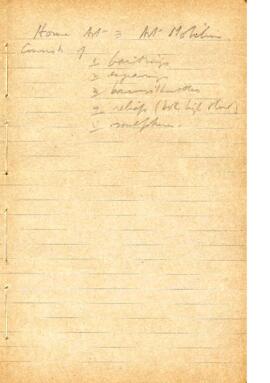 Home Art = Art Mobilier
Consists of
1 paintings
2 engravings
3
4 reliefs (both high & low)
5 sculpture.